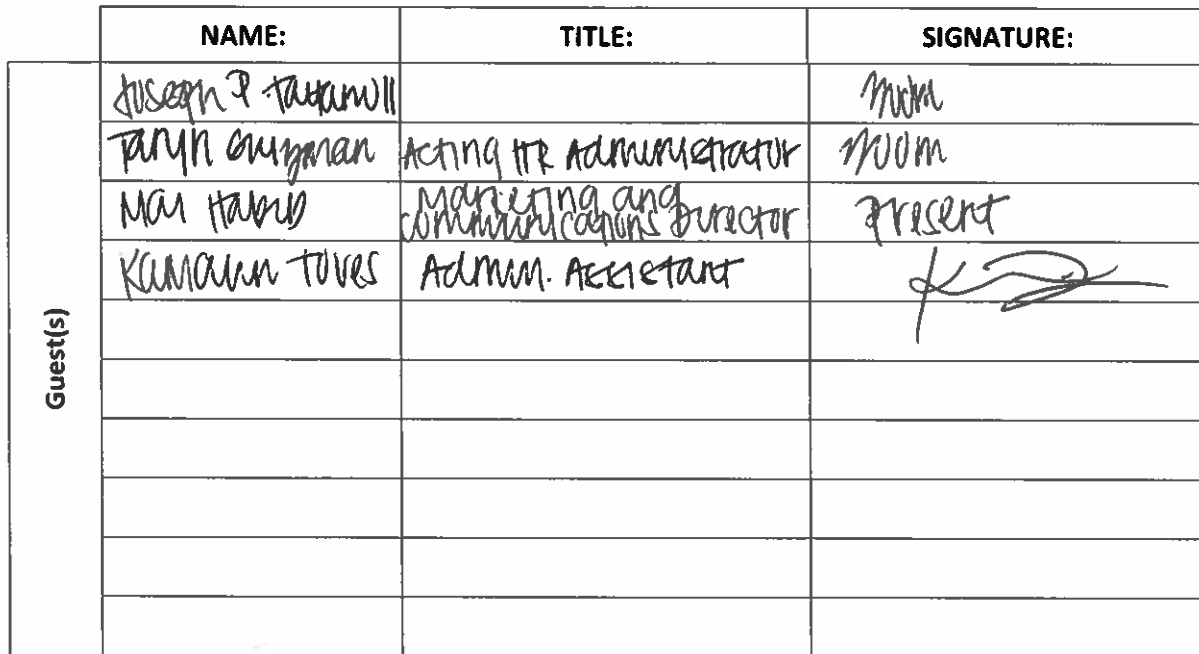 NAME: TITLE: SIGNATURE:
Guest(s)
Joseph P.
Taryn Guzman Acting HR Administrator Zoom
Mai Habib Marketing and
Communications Director Present
Kamalin Toves Admin. Assistant